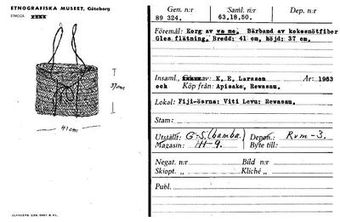 ETNOGRAFISKA MUSEET, Göteborg
Gen. n:r
S. n:r
Dep. n:r
89 324.
63,18,50.
Föremål: Korg av va me. Bärband av kokosnötfiber
Gles flätning. Bredd: 41 cm, höjd: 37 cm.
37cm
41cm
Insaml. av: K. E. Larsson
År: 1963
och Köp från: Apisake, Rewasau.
Lokal: Fiji-öarna: Viti Levu: Rewasau.
Stam:
Utställt: G-S. (bambu)
Depon.: Rum-3.
Magasin: H-9.
Byte till:
Negat. n:r
Bild n:r
Skiopt. »
Kliché »
Publ.